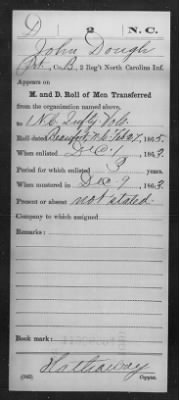 D 2 N.C.
John Dough
Pvt., Co. B, 2 Reg't North Carolina Inf.
Appears on
M. and D. Roll of Men Transferred
from the organization named above,
to 1 N.C. Infty Vols.
Roll dated Beaufort N.C. Feb 27, 1865.
When enlisted Dec 1, 1863.
Period for which enlisted 3 years.
When mustered in Dec 9, 1863.
Present or absent not stated
Company to which assigned
Remarks:
Book mark:
Hathaway
Copyist.